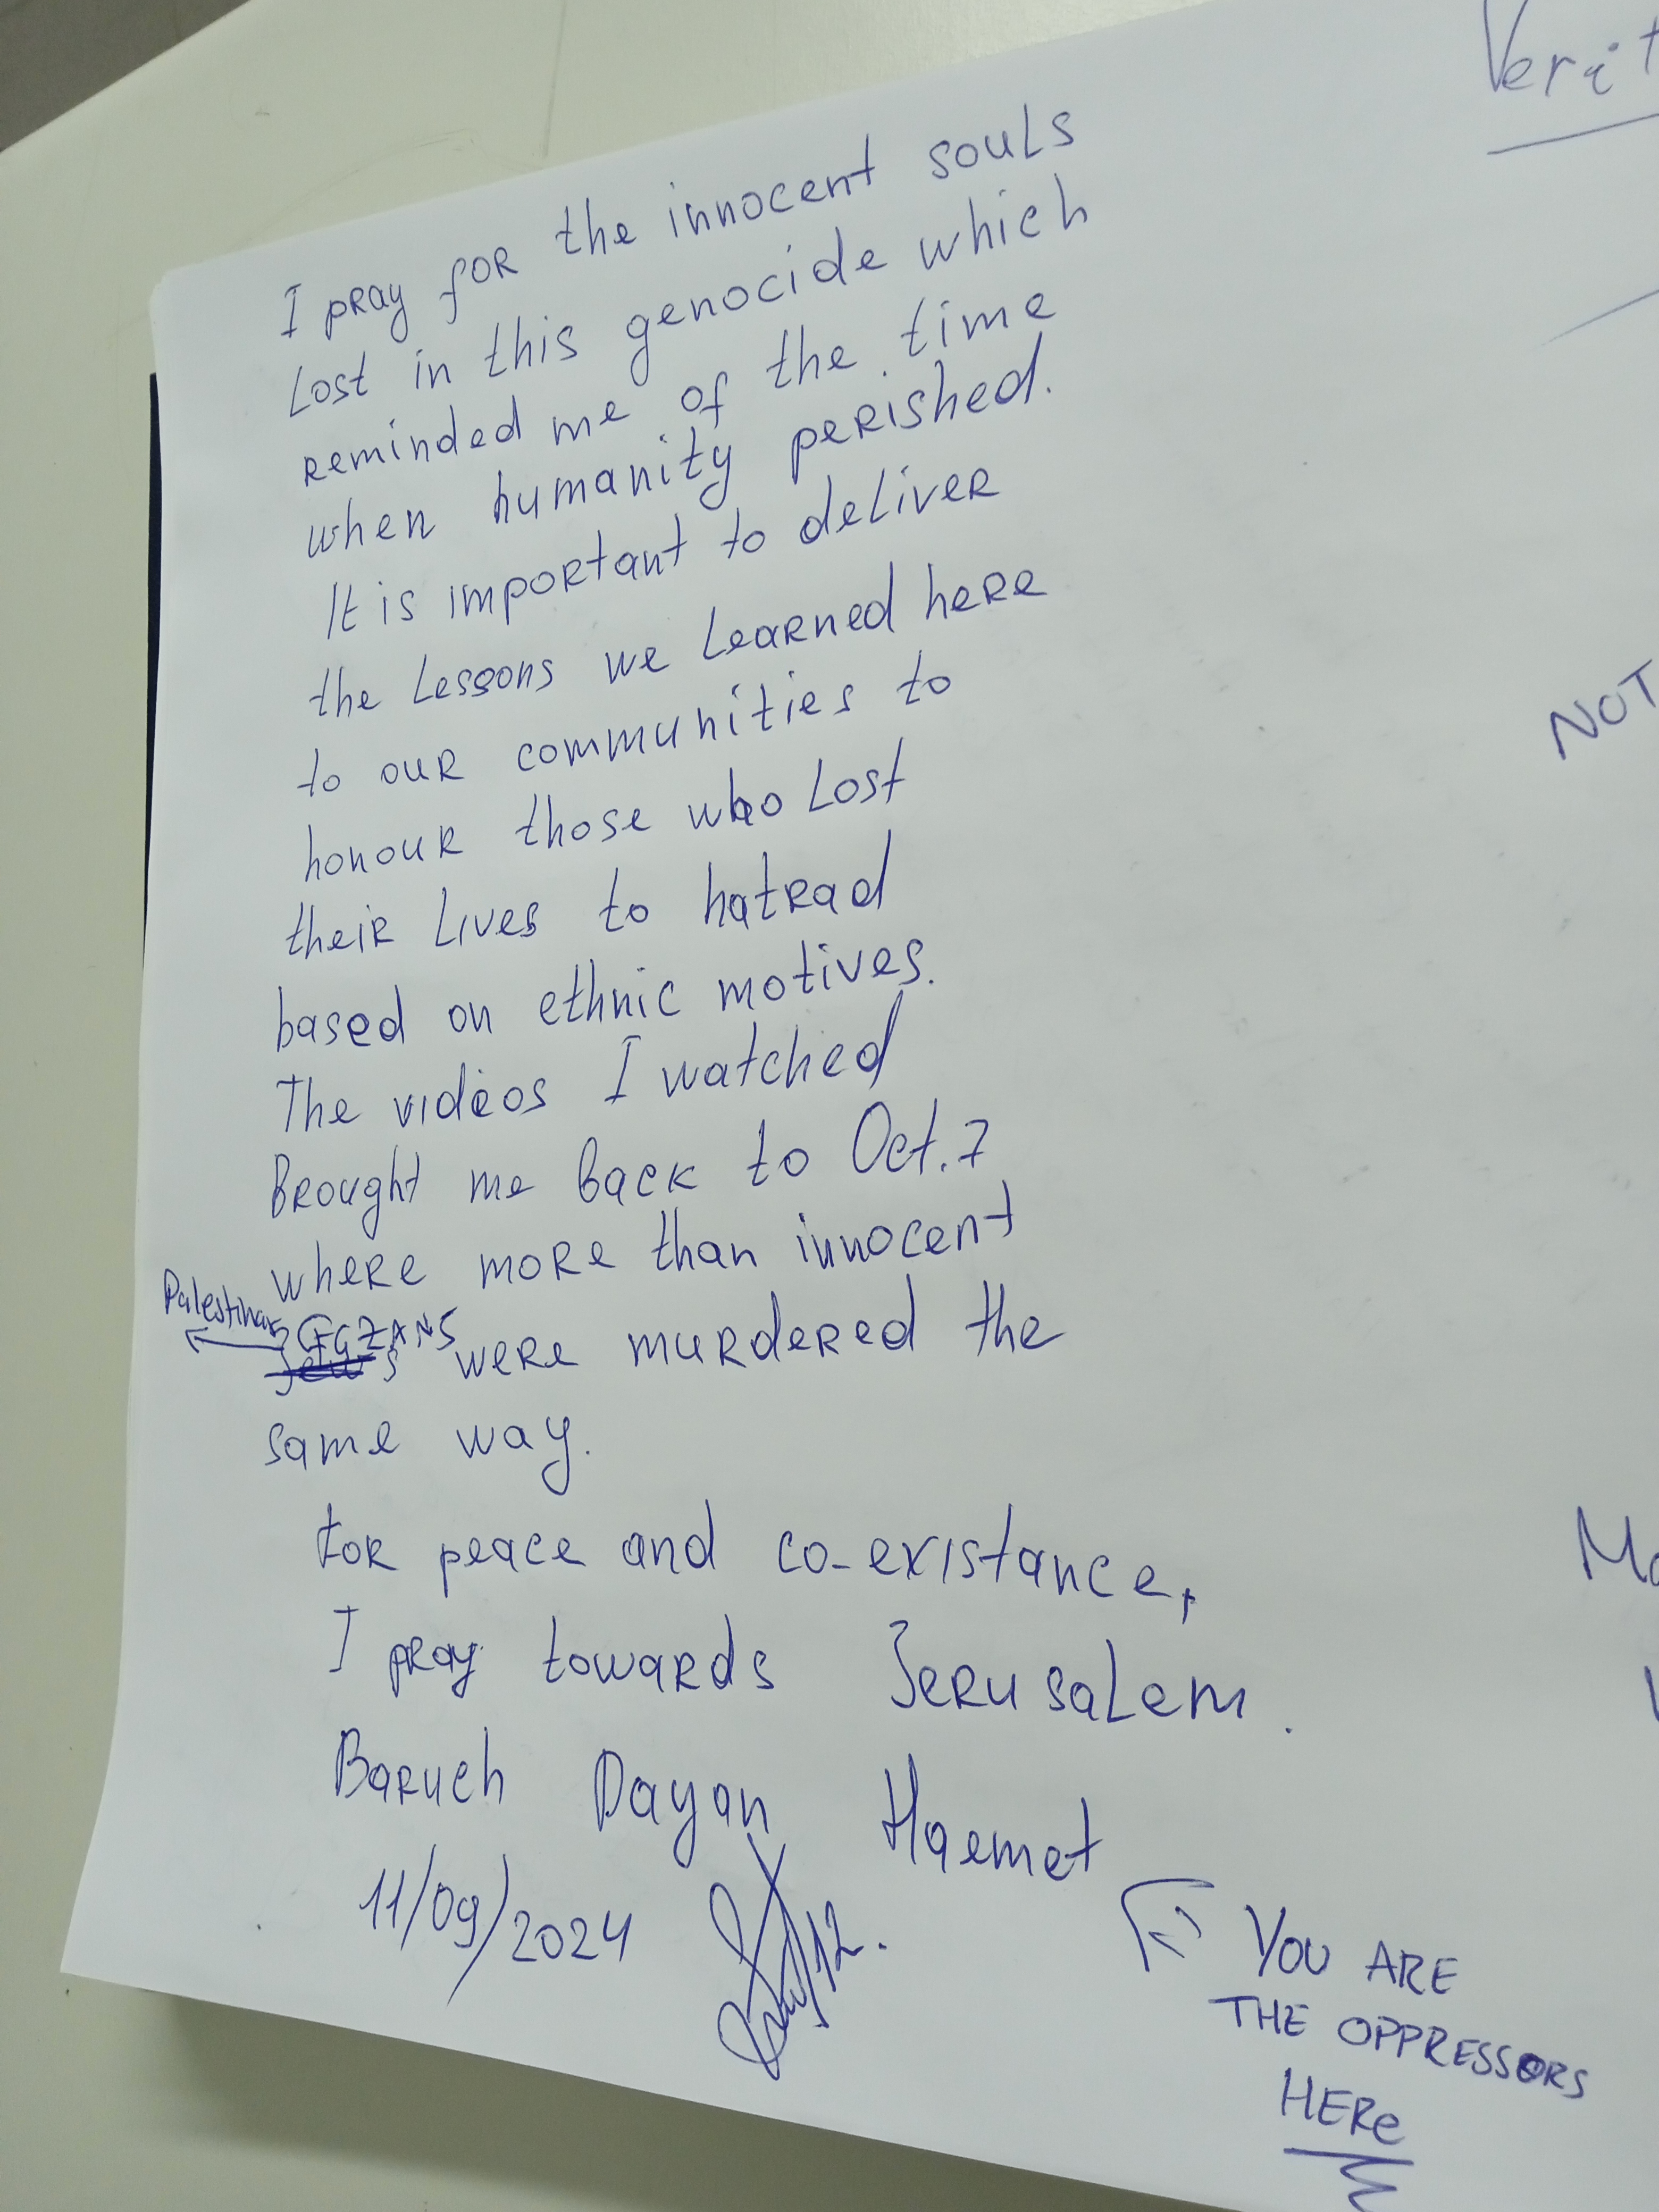 Verit
I pray for the innocent souls
Lost in this genocide which
reminded me of the time
when humanity perished.
It is important to deliver
the Lessons we Learned here
to our communities to
honour those who Lost
their Lives to hatrad
based on ethnic motives.
The videos I watched
Brought me back to Oct. 7
where more than innocent
Palestinans GAZANS
Jews were murdered the
same way.
For peace and co-existance,
I pray towards Jerusalem.
Baruch Dayan Haemet
11/09/2024
NOT
Mo
YOU ARE
THE OPPRESSORS
HERe